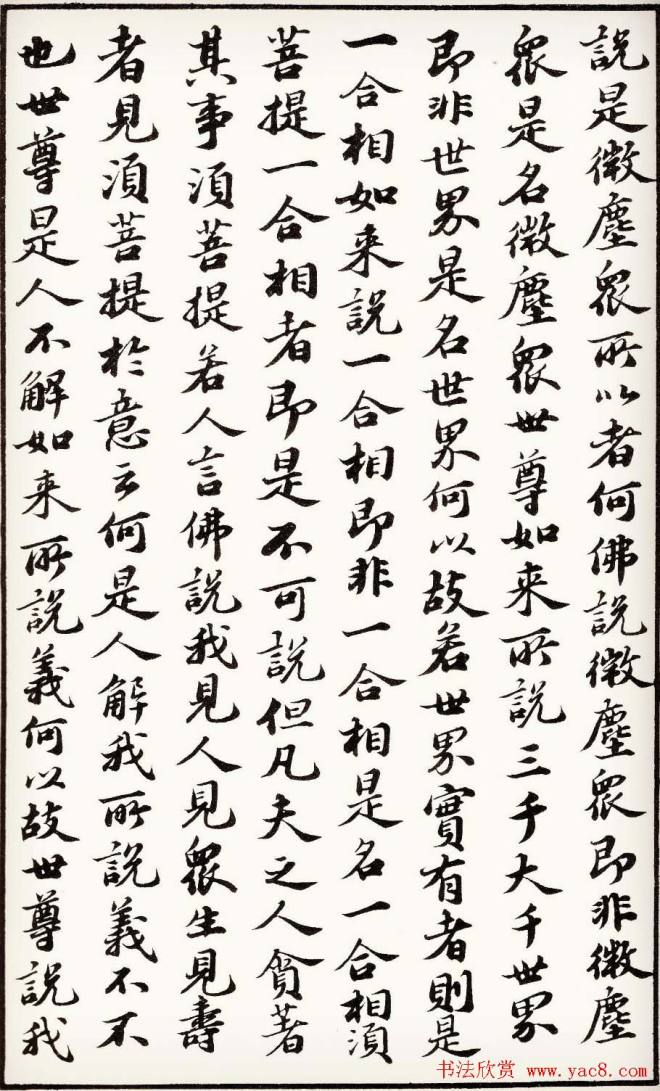 說是微塵眾所以者何佛說微塵眾即非微塵
眾是名微塵眾世尊如来所說三千大千世界
即非世界是名世界何以故若世界實有者則是
一合相如来說一合相即非一合相是名一合相須
菩提一合相者即是不可說但凡夫之人貪著
其事須菩提若人言佛說我見人見眾生見壽
者見須菩提於意云何是人解我所說義不不
也世尊是人不解如来所說義何以故世尊說我
书法欣赏 www.yac8.com